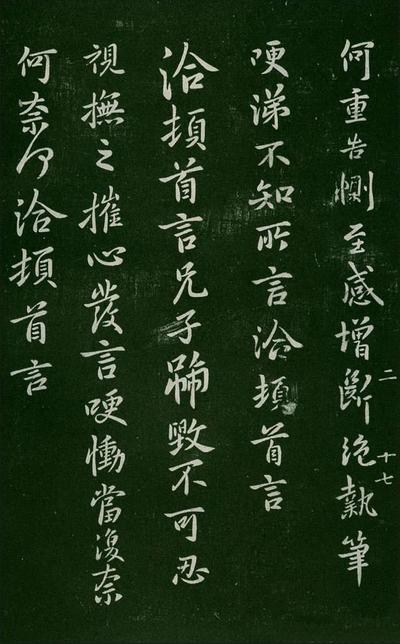 何重告惻至感增斷絕執筆
二
十七
哽涕不知所言洽頓首言
洽頓首言兄子號毀不可忍
視撫之摧心發言哽慟當復奈
何奈何洽頓首言